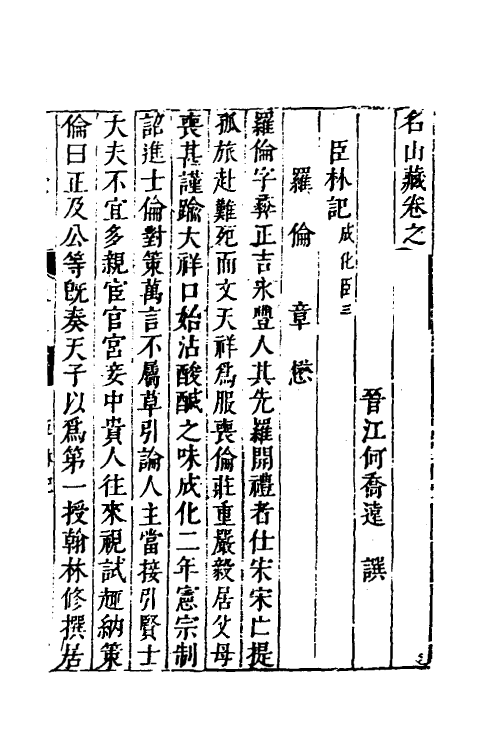 名山藏卷之
晉江何喬遠 譔
臣林記 成化臣三
羅倫 章懋
羅倫字彞正吉永豐人其先羅開禮者仕宋宋亡提
孤旅赴難死而文天祥爲服喪倫莊重嚴毅居父母
喪甚謹踰大祥口始沾酸醎之味成化二年憲宗制
詔進士倫對策萬言不屬草引論人主當接引賢士
大夫不宜多親宦官宮妾中貴人往來視試趣納策
倫曰正及公等旣奏天子以爲第一授翰林修撰居